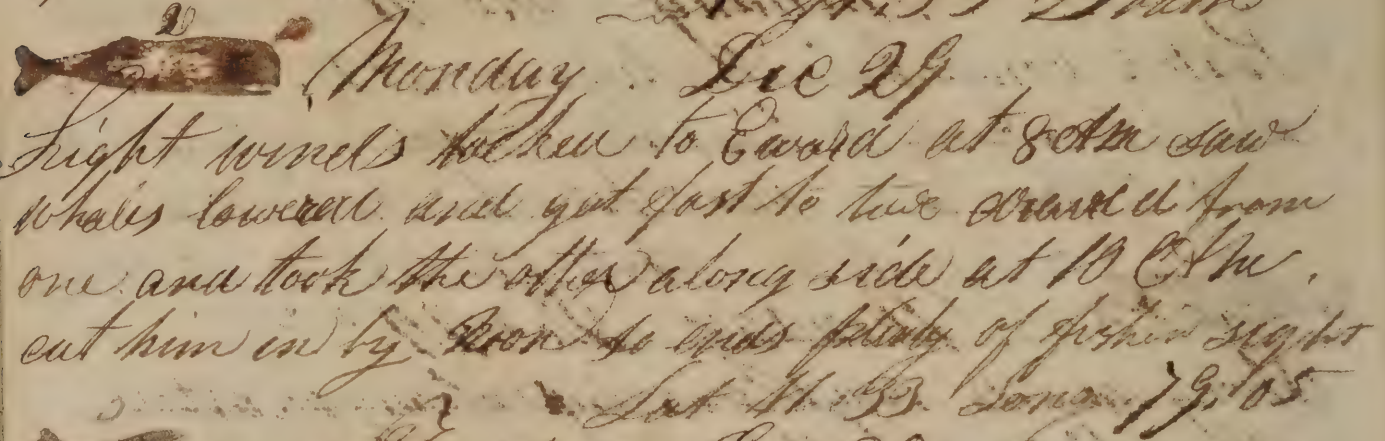 20
Monday Dec 29
Light winds tacked to Eward at 8 AM saw
whales lowered and got fast to two drawed from
one and took the other along side at 10 AM.
cut him in by Noon so ends plenty of fish in sight
Lat 41.33 Long 79.05